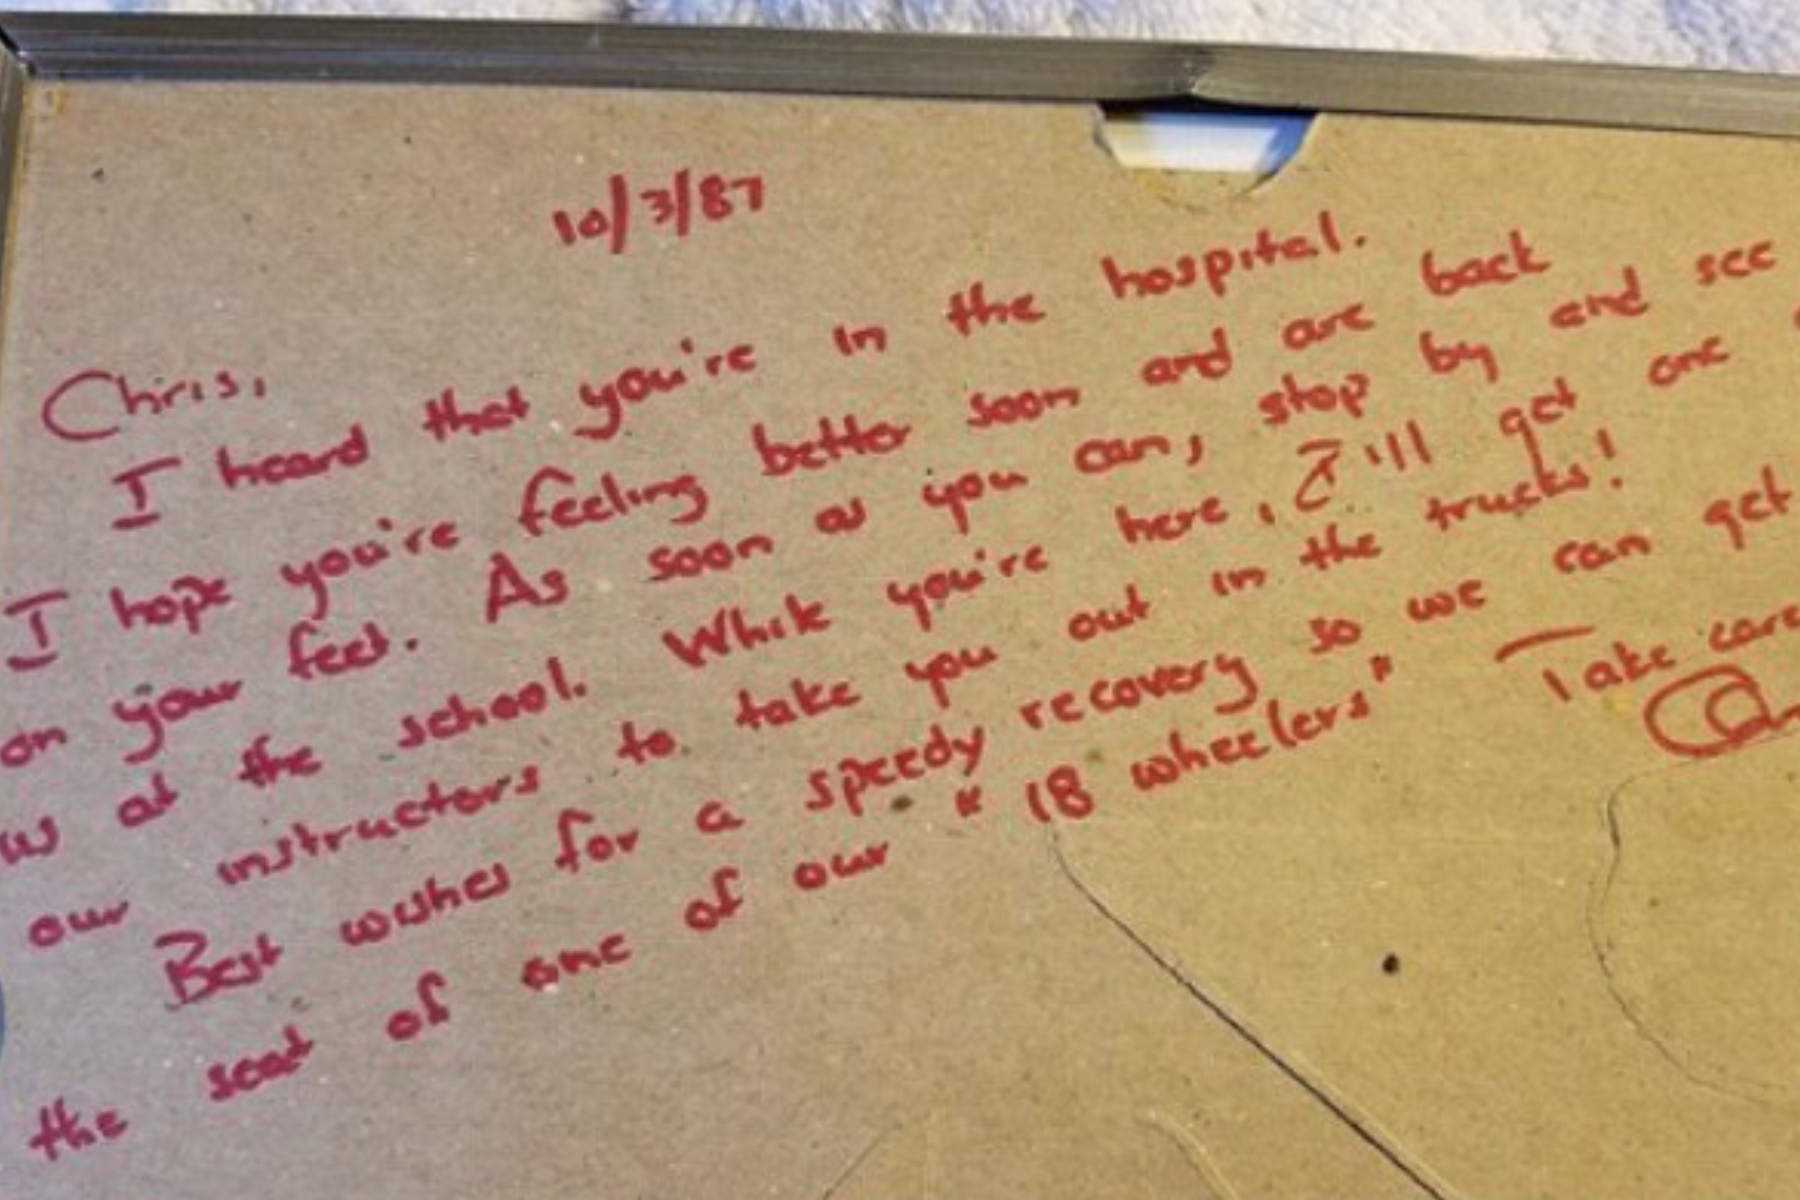 10/3/87
Chris,
I heard that you're in the hospital.
I hope you're feeling better soon and are back
on your feet. As soon as you can, stop by and see
us at the school. While you're here, I'll get one
our instructors to take you out in the trucks!
Best wishes for a speedy recovery so we can get
the seat of one of our "18 wheelers" Take care